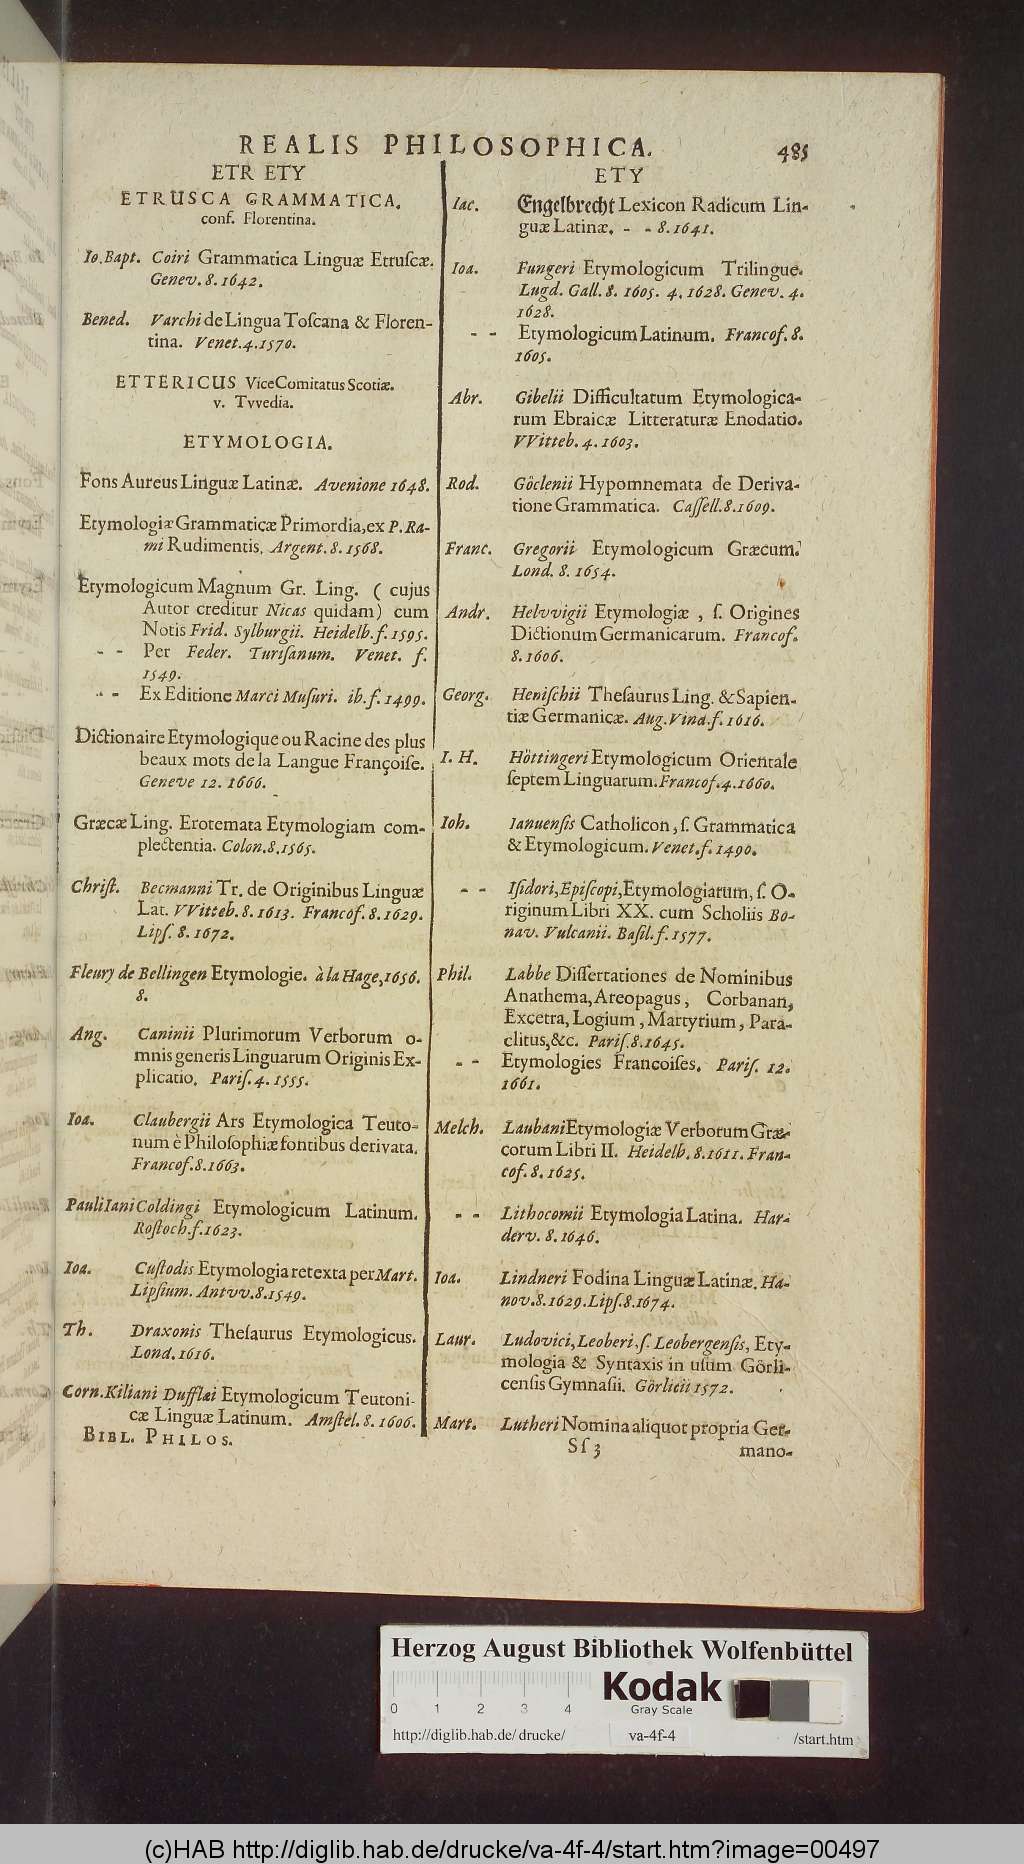 REALIS PHILOSOPHICA. 485
ETR ETY
ETRUSCA GRAMMATICA.
conf. Florentina.
Io. Bapt. Coiri Grammatica Linguæ Etruſcæ.
Genev. 8. 1642.
Bened. Varchi de Lingua Toſcana & Floren-
tina. Venet. 4. 1570.
ETTERICUS ViceComitatus Scotiæ.
v. Tvvedia.
ETYMOLOGIA.
Fons Aureus Linguæ Latinæ. Avenione 1648.
Etymologiæ Grammaticæ Primordia, ex P. Ra-
mi Rudimentis. Argent. 8. 1568.
Etymologicum Magnum Gr. Ling. ( cujus
Autor creditur Nicas quidam) cum
Notis Frid. Sylburgii. Heidelb. f. 1595.
- - Per Feder. Turiſanum. Venet. f.
1549.
- - Ex Editione Marci Muſuri. ib. f. 1499.
Dictionaire Etymologique ou Racine des plus
beaux mots de la Langue Françoiſe.
Geneve 12. 1666.
Græcæ Ling. Erotemata Etymologiam com-
plectentia. Colon. 8. 1565.
Chriſt. Becmanni Tr. de Originibus Linguæ
Lat. VVitteb. 8. 1613. Francof. 8. 1629.
Lipſ. 8. 1672.
Fleury de Bellingen Etymologie. à la Hage, 1656.
8.
Ang. Caninii Plurimorum Verborum o-
mnis generis Linguarum Originis Ex-
plicatio. Pariſ. 4. 1555.
Ioa. Claubergii Ars Etymologica Teuto-
num è Philoſophiæ fontibus derivata.
Francof. 8. 1663.
Pauli Iani Coldingi Etymologicum Latinum.
Roſtoch. f. 1623.
Ioa. Cuſtodis Etymologia retexta per Mart.
Lipſium. Antvv. 8. 1549.
Th. Draxonis Theſaurus Etymologicus.
Lond. 1616.
Corn. Kiliani Dufflæi Etymologicum Teutoni-
cæ Linguæ Latinum. Amſtel. 8. 1606.
BIBL. PHILOS.
ETY
Iac. Engelbrecht Lexicon Radicum Lin-
guæ Latinæ. - - 8. 1641.
Ioa. Fungeri Etymologicum Trilingue.
Lugd. Gall. 8. 1605. 4. 1628. Genev. 4.
1628.
- - Etymologicum Latinum. Francof. 8.
1605.
Abr. Gibelii Difficultatum Etymologica-
rum Ebraicæ Litteraturæ Enodatio.
VVitteb. 4. 1603.
Rod. Göclenii Hypomnemata de Deriva-
tione Grammatica. Caſſell. 8. 1609.
Franc. Gregorii Etymologicum Græcum.
Lond. 8. 1654.
Andr. Helvvigii Etymologiæ , ſ. Origines
Dictionum Germanicarum. Francof.
8. 1606.
Georg. Heniſchii Theſaurus Ling. & Sapien-
tiæ Germanicæ. Aug. Vind. f. 1616.
I. H. Höttingeri Etymologicum Orientale
ſeptem Linguarum. Francof. 4. 1660.
Ioh. Ianuenſis Catholicon, ſ. Grammatica
& Etymologicum. Venet. f. 1490.
- - Iſidori, Epiſcopi, Etymologiarum, ſ. O-
riginum Libri XX. cum Scholiis Bo-
nav. Vulcanii. Baſil. f. 1577.
Phil. Labbe Diſſertationes de Nominibus
Anathema, Areopagus, Corbanan,
Excetra, Logium, Martyrium, Para-
clitus, &c. Pariſ. 8. 1645.
- - Etymologies Francoiſes. Pariſ. 12.
1661.
Melch. Laubani Etymologiæ Verborum Græ-
corum Libri II. Heidelb. 8. 1611. Fran-
cof. 8. 1625.
- - Lithocomii Etymologia Latina. Har-
derv. 8. 1646.
Ioa. Lindneri Fodina Linguæ Latinæ. Ha-
nov. 8. 1629. Lipſ. 8. 1674.
Laur. Ludovici, Leoberi. ſ. Leobergenſis, Ety-
mologia & Syntaxis in uſum Görli-
cenſis Gymnaſii. Görlicii 1572.
Mart. Lutheri Nomina aliquot propria Ger-
Sſ 3 mano-
Herzog August Bibliothek Wolfenbüttel
0 1 2 3 4
Kodak
Gray Scale
http://diglib.hab.de/ drucke/ va-4f-4 /start.htm
(c)HAB http://diglib.hab.de/drucke/va-4f-4/start.htm?image=00497